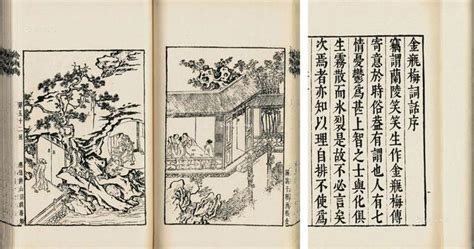 金瓶梅詞話序
竊謂蘭陵笑笑生作金瓶梅傳
寄意於時俗蓋有謂也人有七
情憂鬱爲甚上智之士與化俱
生霧散而氷裂是故不必言矣
次焉者亦知以理自排不使爲
第五十二回